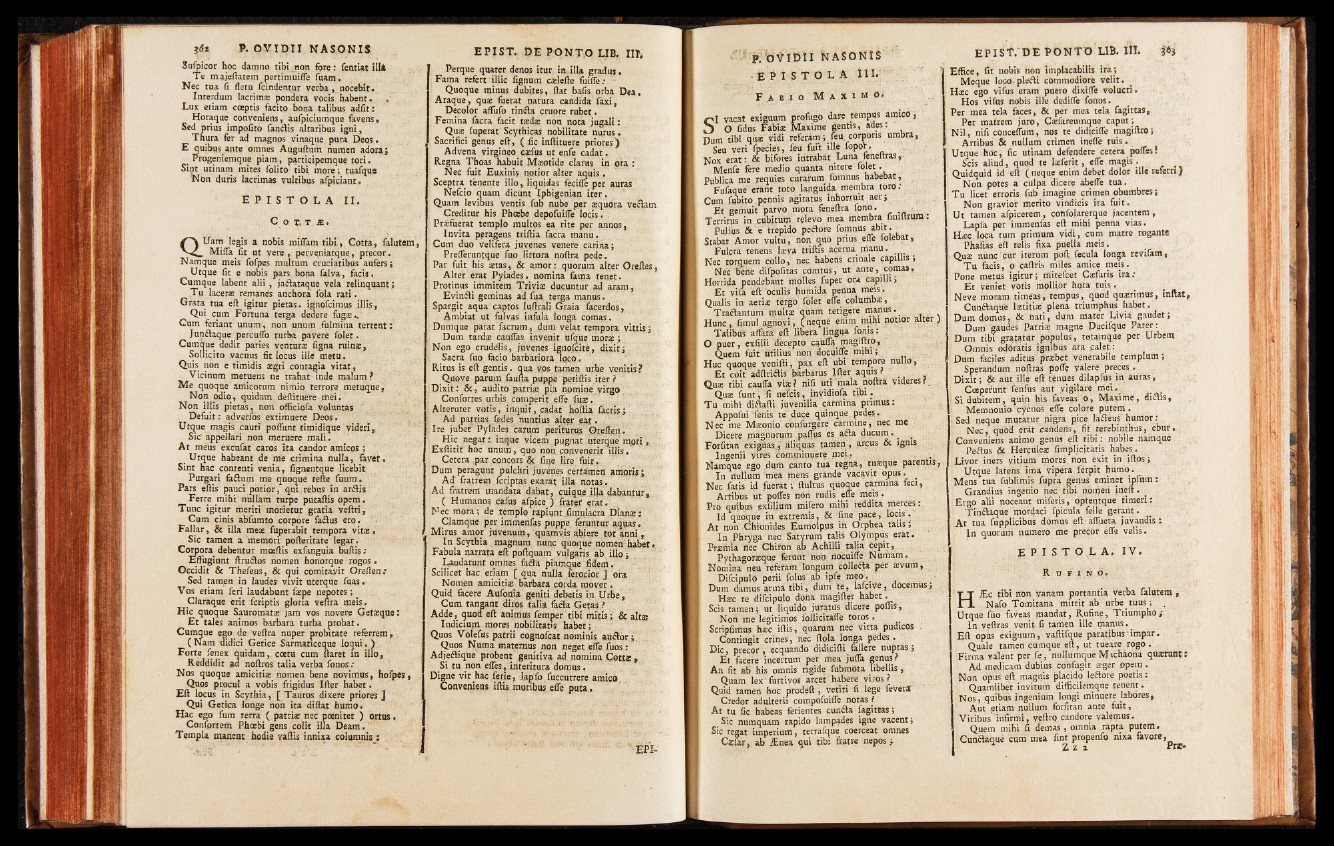 362 P. OVIDII NASONIS
Suſpicor hoc damno tibi non fore: ſentiat illa
Te majeſtatem pertimuiſſe ſuam.
Nec tua ſi fletu ſcindentur verba, nocebit.
Interdum lacrimæ pondera vocis habent.
Lux etiam cœptis facito bona talibus adſit:
Horaque conveniens, auſpiciumque favens.
Sed prius impoſito ſanctis altaribus igni,
Thura fer ad magnos vinaque pura Deos.
E quibus ante omnes Auguſtum numen adora;
Progeniemque piam, participemque tori.
Sint utinam mites ſolito tibi more; tuaſque
Non duris lacrimas vultibus aſpiciant.
EPISTOLA II.
COTTÆ.
QUam legis a nobis miſſam tibi, Cotta, ſalutem,
Miſſa ſit ut vere, perveniatque, precor.
Namque meis ſoſpes multum cruciatibus aufers;
Utque ſit e nobis pars bona ſalva, facis.
Cumque labent alii, jactataque vela relinquant;
Tu laceræ remanes anchora ſola rati.
Grata tua eſt igitur pietas. ignoſcimus illis,
Qui cum Fortuna terga dedere fugæ.
Cum feriant unum, non unum fulmina terrent:
Junctaque percuſſo turba pavere ſolet.
Cumque dedit paries venturæ ſigna ruinæ,
Sollicito vacuus fit locus ille metu.
Quis non e timidis ægri contagia vitat,
Vicinum metuens ne trahat inde malum?
Me quoque amicorum nimio terrore metuque,
Non odio, quidam deſtituere mei.
Non illis pietas, non officioſa voluntas
Defuit: adverſos extimuere Deos.
Utque magis cauti poſſunt timidique videri,
Sic appellari non meruere mali.
At meus excuſat caros ita candor amicos;
Utque habeant de me crimina nulla, favet.
Sint hac contenti venia, ſignentque licebit
Purgari factum me quoque teſte ſuum.
Pars eſtis pauci potior, qui rebus in arctis
Ferre mihi nullam turpe putaſtis opem.
Tunc igitur meriti morietur gratia veſtri,
Cum cinis abſumto corpore factus ero.
Fallar, & illa meæ ſuperabit tempora vitæ,
Sic tamen a memori poſteritate legar.
Corpora debentur mœſtis exſanguia buſtis:
Effugiunt ſtructos nomen honorque rogos.
Occidit & Theſeus, & qui comitavit Oreſten:
Sed tamen in laudes vivit uterque ſuas.
Vos etiam ſeri laudabunt ſæpe nepotes;
Claraque erit ſcriptis gloria veſtra meis.
Hic quoque Sauromatæ jam vos novere Getæque:
Et tales animos barbara turba probat.
Cumque ego de veſtra nuper probitate referrem,
(Nam didici Getice Sarmaticeque loqui.)
Forte ſenex quidam, cœtu cum ſtaret in illo,
Reddidit ad noſtros talia verba ſonos:
Nos quoque amicitiæ nomen bene novimus, hoſpes,
Quos procul a vobis frigidus Iſter habet.
Eſt locus in Scythia, [ Tauros dixere priores ]
Qui Getica longe non ita diſtat humo.
Hac ego ſum terra ( patriæ nec pœnitet ) ortus.
Conſortem Phœbi gens colit illa Deam.
Templa manent hodie vaſtis innixa columnis;
EPIST. DE PONTO LIB. III.
Perque quater denos itur in illa gradus.
Fama refert illic ſignum cæleſte fuiſſe:
Quoque minus dubites, ſtat baſis orba Dea.
Araque, quæ fuerat natura candida ſaxi,
Decolor affuſo tincta cruore rubet.
Femina ſacra facit tædæ non nota jugali:
Quæ ſuperat Scythicas nobilitate nurus.
Sacrifici genus eſt, ( ſic inſtituere priores )
Advena virgineo cæſus ut enſe cadat.
Regna Thoas habuit Mæotide clarus in ora:
Nec fuit Euxinis notior alter aquis.
Sceptra tenente illo, liquidas feciſſe per auras
Neſcio quam dicunt Iphigenian iter.
Quam levibus ventis ſub nube per æquora vectam
Creditur his Phœbe depoſuiſſe locis.
Præfuerat templo multos ea rite per annos,
Invita peragens triſtia ſacra manu.
Cum duo velifera juvenes venere carina;
Preſſeruntque ſuo littora noſtra pede.
Par fuit his ætas, & amor: quorum alter Oreſtes,
Alter erat Pylades. nomina fama tenet.
Protinus immitem Triviæ ducuntur ad aram,
Evincti geminas ad ſua terga manus.
Spargit aqua captos luſtrali Graia ſacerdos,
Ambiat ut fulvas infula longa comas.
Dumque parat ſacrum, dum velat tempora vittis;
Dum tardæ cauſſas invenit uſque moræ;
Non ego crudelis, juvenes ignoſcite, dixit;
Sacra ſuo facio barbariora loco.
Ritus is eſt gentis. qua vos tamen urbe venitis?
Quove parum fauſta puppe petiſtis iter?
Dixit: &, audito patriæ pia nomine virgo
Conſortes urbis comperit eſſe ſuæ.
Alteruter votis, inquit, cadat hoſtia ſacris;
Ad patrias ſedes nuntius alter eat.
Ire jubet Pylades carum periturus Oreſten.
Hic negat: inque vicem pugnat uterque mori.
Exſtitit hoc unum, quo non convenerit illis.
Cetera par concors & ſine lite fuit.
Dum peragunt pulchri juvenes certamen amoris;
Ad fratrem ſcriptas exarat illa notas.
Ad fratrem mandata dabat, cuique illa dabantur,
( Humanos caſus aſpice ) frater erat.
Nec mora; de templo rapiunt ſimulacra Dianæ:
Clamque per immenſas puppe feruntur aquas.
Mirus amor juvenum, quamvis abiere tot anni,
In Scythia magnum nunc quoque nomen habet.
Fabula narrata eſt poſtquam vulgaris ab illo;
Laudarunt omnes facta piamque fidem.
Scilicet hac etiam [ qua nulla ferocior ] ora
Nomen amicitiæ barbara corda movet.
Quid facere Auſonia geniti debetis in Urbe,
Cum tangant diros talia facta Getas?
Adde, quod eſt animus ſemper tibi mitis; & altæ
Indicium mores nobilitatis habet;
Quos Voleſus patrii cognoſcat nominis auctor;
Quos Numa maternus non neget eſſe ſuos:
Adjectique probent genitiva ad nomina Cottæ,
Si tu non eſſes, interitura domus.
Digne vir hac ſerie, lapſo ſuccurrere amico
Conveniens iſtis moribus eſſe puta.
EPI-
P. OVIDII NASONIS
EPISTOLA III.
FABIO MAXIMO.
SI vacat exiguum profugo dare tempus amico,
O ſidus Fabiæ Maxime gentis, ades:
Dum tibi quæ vidi referam; ſeu corporis umbra,
Seu veri ſpecies, ſeu fuit ille ſopor.
Nox erat: & bifores intrabat Luna feneſtras,
Menſe fere medio quanta nitere ſolet.
Publica me requies curarum ſomnus habebat,
Fuſaque erant toto languida membra toro:
Cum ſubito pennis agitatus inhorruit aer;
Et gemuit parvo mota feneſtra ſono.
Territus in cubitum relevo mea membra ſiniſtrum:
Pulſus & e trepido pectore ſomnus abit.
Stabat Amor vultu, non quo prius eſſe ſolebat,
Fulcra tenens læva triſtis acerna manu.
Nec torquem collo, nec habens crinale capillis;
Nec bene diſpoſitas comtus, ut ante, comas.
Horrida pendebant molles ſuper ora capilli;
Et viſa eſt oculis humida penna meis.
Qualis in aeriæ tergo ſolet eſſe columbæ,
Tractantum multæ quam tetigere manus.
Hunc, ſimul agnovi, ( neque enim mihi notior alter )
Talibus affata eſt libera lingua ſonis:
O puer, exſilii decepto cauſſa magiſtro,
Quem fuit utilius non docuiſſe mihi;
Huc quoque veniſti, pax eſt ubi tempore nullo,
Et coit adſtrictis barbarus Iſter aquis?
Quæ tibi cauſſa viæ? niſi uti mala noſtra videres?
Quæ ſunt, ſi neſcis, invidioſa tibi.
Tu mihi dictaſti juvenilia carmina primus:
Appoſui ſenis te duce quinque pedes.
Nec me Mæonio conſurgere carmine, nec me
Dicere magnorum paſſus es acta ducum.
Forſitan exiguas, aliquas tamen, arcus & ignis
Ingenii vires comminuere mei.
Namque ego dum canto tua regna, tuæque parentis,
In nullum mea mens grande vacavit opus.
Nec ſatis id fuerat; ſtultus quoque carmina feci,
Artibus ut poſſes non rudis eſſe meis.
Pro quibus exſilium miſero mihi reddita merces:
Id quoque in extremis, & ſine pace, locis.
At non Chionides Eumolpus in Orphea talis;
In Phryga nec Satyrum talis Olympus erat.
Præmia nec Chiron ab Achilli talia cepit,
Pythagoræque ferunt non nocuiſſe Numam.
Nomina neu referam longum collecta per ævum,
Diſcipulo perii ſolus ab ipſe meo.
Dum damus arma tibi, dum te, laſcive, docemus;
Hæc te diſcipulo dona magiſter habet.
Scis tamen; ut liquido juratus dicere poſſis,
Non me legitimos ſollicitaſſe toros.
Scripſimus hæc iſtis, quarum nec virta pudicos
Contingit crines, nec ſtola longa pedes.
Dic, precor, ecquando didiciſti fallere nuptas;
Et facere incertum per mea juſſa genus?
An ſit ab his omnis rigide ſubmota libellis,
Quam lex furtivos arcet habere viros?
Quid tamen hoc prodeſt, vetiti ſi lege ſeveræ
Credor adulterii compoſuiſſe notas?
At tu ſic habeas ferientes cuncta ſagittas;
Sic numquam rapido lampades igne vacent;
Sic regat imperium, terraſque coerceat omnes
Cæſar, ab Ænea qui tibi fratre nepos;
EPIST. DE PONTO LIB. III. 363
Effice, ſit nobis non implacabilis ira;
Meque loco plecti commodiore velit.
Hæc ego viſus eram puero dixiſſe volucri.
Hos viſus nobis ille dediſſe ſonos.
Per mea tela faces, & per mea tela ſagittas,
Per matrem juro, Cæſareumque caput;
Nil, niſi conceſſum, nos te didiciſſe magiſtro;
Artibus & nullum crimen ineſſe tuis.
Utque hoc, ſic utinam defendere cetera poſſes!
Scis aliud, quod te læſerit, eſſe magis.
Quidquid id eſt ( neque enim debet dolor ille referri )
Non potes a culpa dicere abeſſe tua.
Tu licet erroris ſub imagine crimen obumbres;
Non gravior merito vindicis ira fuit.
Ut tamen aſpicerem, conſolarerque jacentem,
Lapſa per immenſas eſt mihi penna vias.
Hæc loca tum primum vidi, cum matre rogante
Phaſias eſt telis fixa puella meis.
Quæ nunc cur iterum poſt ſecula longa reviſam,
Tu facis, o caſtris miles amice meis.
Pone metus igitur; miteſcet Cæſaris ira:
Et veniet votis mollior hora tuis.
Neve moram timeas, tempus, quod quærimus, inſtat,
Cunctaque lætitiæ plena triumphus habet.
Dum domus, & nati, dum mater Livia gaudet;
Dum gaudes Patriæ magne Ducſque Pater:
Dum tibi gratatur populus, totamque per Urbem
Omnis odoratis ignibus ara calet:
Dum faciles aditus præbet venerabile templum;
Sperandum noſtras poſſe valere preces.
Dixit; & aut ille eſt tenues dilapſus in auras,
Cœperunt ſenſus aut vigilare mei.
Si dubitem, quin his faveas o, Maxime, dictis,
Memnonio cycnos eſſe colore putem.
Sed neque mutatur nigra pice lacteus humor:
Nec, quod erat candens, fit terebinthus, ebur.
Conveniens animo genus eſt tibi: nobile namque
Pectus & Herculeæ ſimplicitatis habes.
Livor iners vitium mores non exit in iſtos;
Utque latens ima vipera ſerpit humo.
Mens tua ſublimis ſupra genus eminet ipſum:
Grandius ingenio nec tibi nomen ineſt.
Ergo alii noceant miſeris, optentque timeri:
Tinctaque mordaci ſpicula felle gerant.
At tua ſupplicibus domus eſt aſſueta juvandis:
In quorum numero me precor eſſe velis.
EPISTOLA. IV.
RUFINO.
HÆc tibi non vanam portantia verba ſalutem,
Naſo Tomitana mittit ab urbe tuus;
Utque ſuo faveas mandat, Rufine, Triumpho;
In veſtras venit ſi tamen ille manus.
Eſt opus exiguum, vaſtiſque paratibus impar.
Quale tamen cumque eſt, ut tueare rogo.
Firma valent per ſe, nullumque Machaona quærunt:
Ad medicam dubius confugit æger opem.
Non opus eſt magnis placido lectore poetis:
Quamlibet invitum difficilemque tenent.
Nos, quibus ingenium longi minuere labores,
Aut etiam nullum forſitan ante fuit,
Viribus infirmi, veſtro candore valemus.
Quem mihi ſi demas, omnia rapta putem.
Cunctaque cum mea ſint propenſo nixa favore,
Z z 2 Præ-